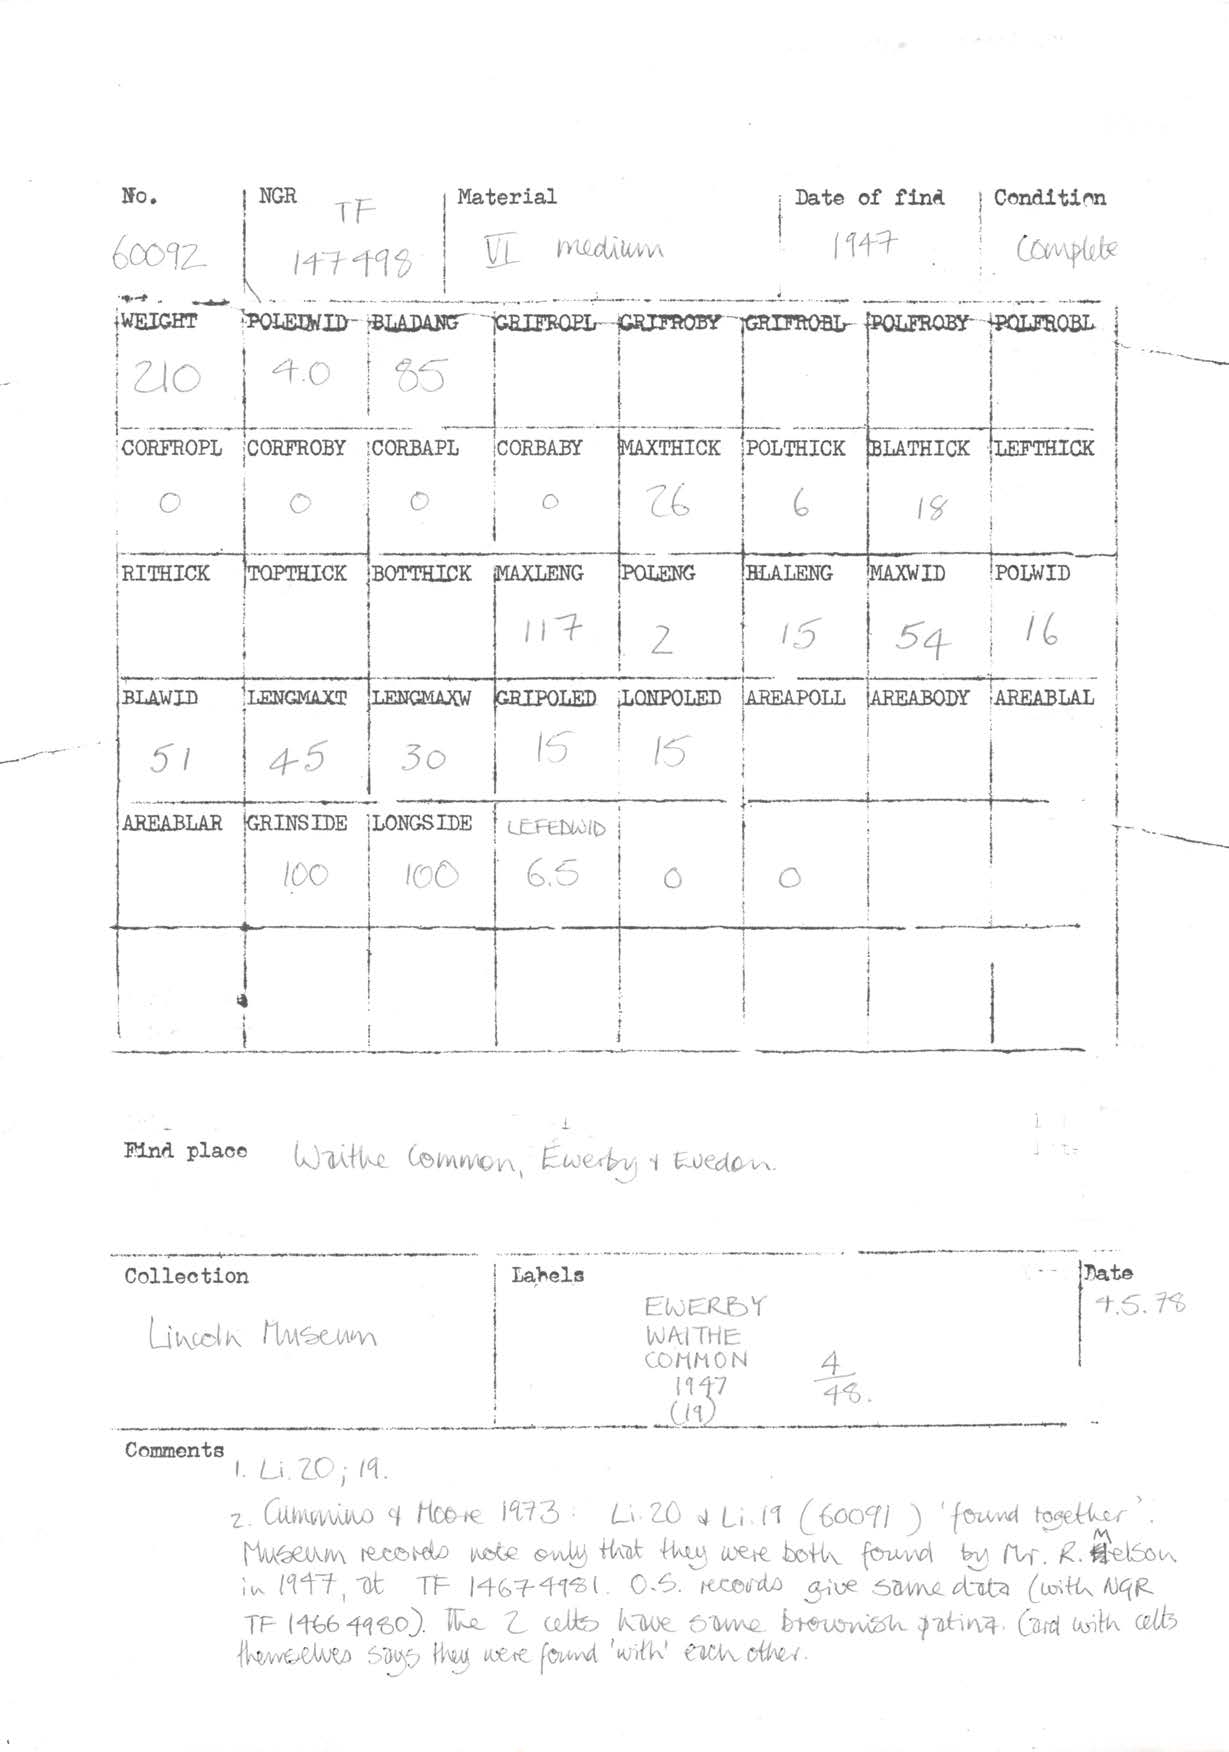 No. NGR Material Date of find Condition
TF
60092 147498 VI medium 1947 Complete
WEIGHT POLEDWID BLADANG GRIFROPL GRIFROBY GRIFROBL POLFROBY POLFROBL
210 4.0 85
CORFROPL CORFROBY CORBAPL CORBABY MAXTHICK POLTHICK BLATHICK LEFTHICK
0 0 0 0 26 6 18
RITHICK TOPTHICK BOTTHICK MAXLENG POLENG BLALENG MAXWID POLWID
117 2 15 54 16
BLAWID LENGMAXT LENGMAXW GRIPOLED LONPOLED AREAPOLL AREABODY AREABLAL
51 45 30 15 15
AREABLAR GRINSIDE LONGSIDE LEFEDWID
100 100 6.5 0 0
Find place Waithe Common, Ewerby & Evedon.
Collection Labels Date
Lincoln Museum
EWERBY
WAITHE
COMMON
1947
(19)
4/48.
4.5.78
Comments
1. Li.20; 19.
2. Cummins & Moore 1973: Li.20 & Li.19 (60091) 'found together'.
Museum records note only that they were both found by Mr. R. Melson
in 1947, at TF 14674981. O.S. records give same data (with NGR
TF 14664980). The 2 celts have same brownish patina. Card with celts
themselves says they were found 'with' each other.